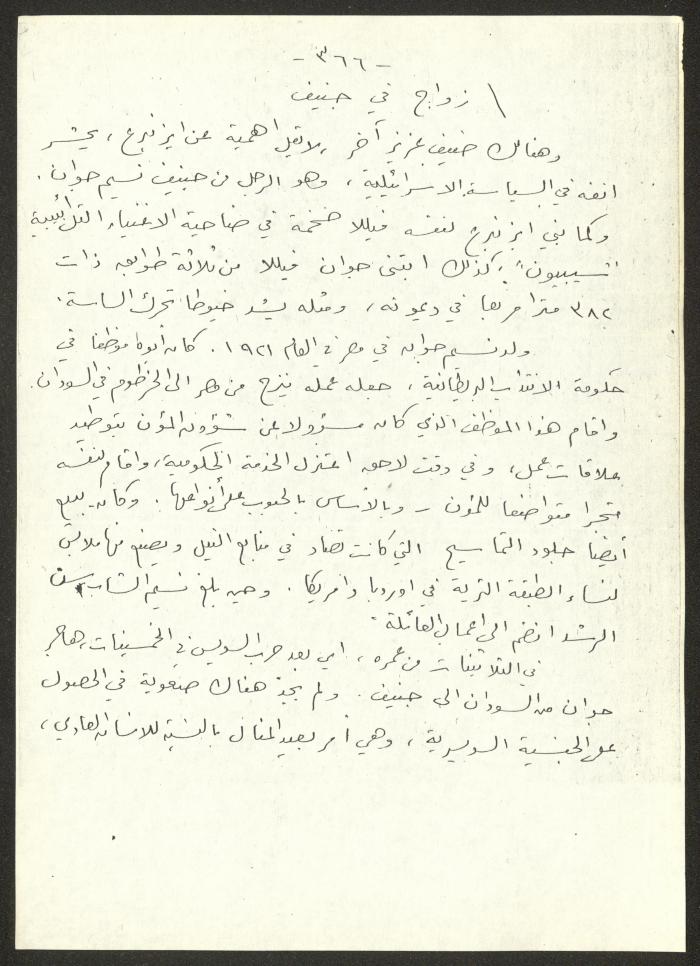 - ٣٦٦ -
\ زواج في جنيف
وهنالك ضيف عزيز آخر ، لا يقل اهمية عن ايزنبرغ ، يحشر
انفه في السياسة الاسرائيلية ، وهو الرجل من جنيف نسيم جوان .
وكما بنى ايزنبرغ لنفسه فيللا ضخمة في ضاحية الاغنياء التل ابيبية
"تسيبيون" ، كذلك ابتنى جوان فيللا من ثلاثة طوابق ذات
٣٨٢ مترا مربعا في ، ومثله يشد خيوطا تحرك الساسة .
ولد نسيم جوان في مصر في العام ١٩٢١ . كان أبوه موظفا في
حكومة الانتداب البريطانية ، جعله عمله ينزح من مصر الى الخرطوم في السودان .
واقام هذا الموظف الذي كان مسؤولا عن شؤون المؤن بتوطيد
علاقات عمل ، وفي وقت لاحق اعتزل الخدمة الحكومية ، واقام لنفسه
متجرا متواضعا للمؤن - وبالأساس بالحبوب على أنواعها . وكان يبيع
أيضا جلود التماسيح التي كانت تصاد في منابع النيل ويصنع منها ملابس
لنساء الطبقة الثرية في اوروبا وامريكا . وحين بلغ نسيم الشاب سن
الرشد انضم الى اعمال العائلة .
في الثلاثينات من عمره ، اي بعد حرب السويس في الخمسينات ، هاجر
جوان من السودان الى جنيف . ولم يجد هناك صعوبة في الحصول
على الجنسية السويسرية ، وهي أمر بعيد المنال بالنسبة للانسان العادي ،